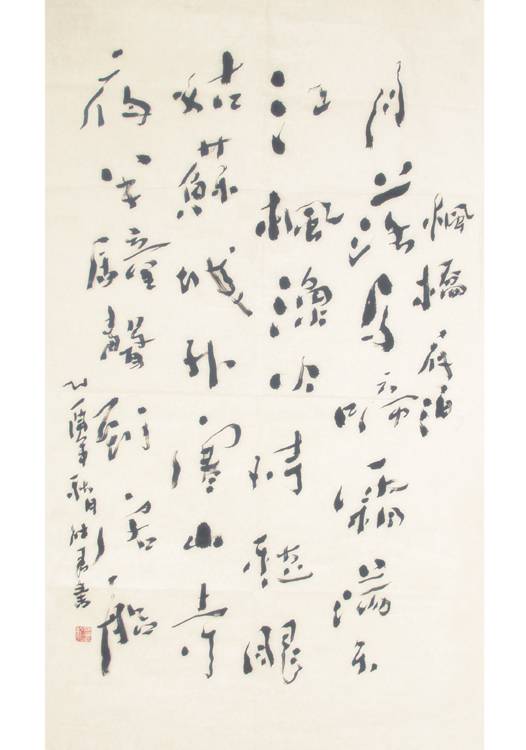 楓橋夜泊
月落烏啼霜滿天
江楓漁火對愁眠
姑蘇城外寒山寺
夜半鐘聲到客船
年秋月書